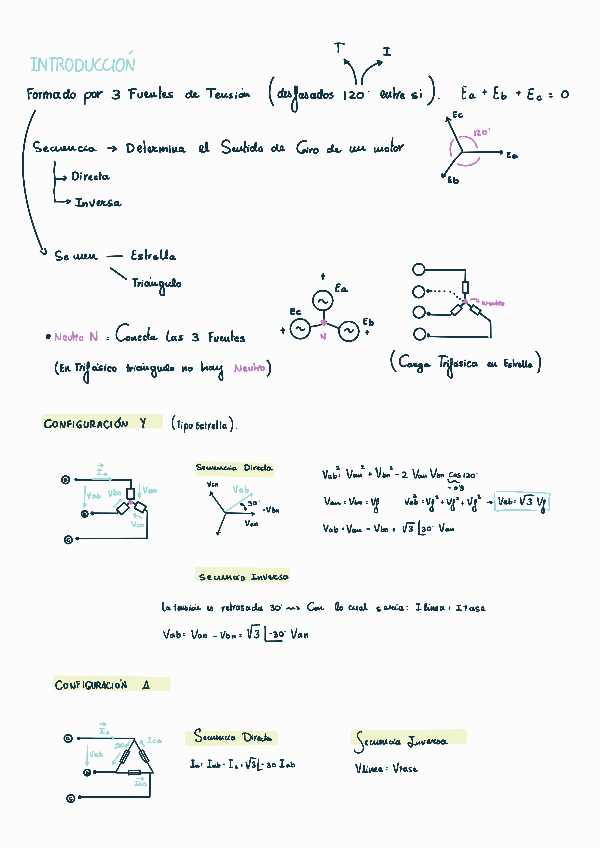 T I
INTRODUCCIÓN
Formado por 3 Fuentes de Tensión (desfasados 120° entre si). Ea + Eb + Ec = 0
Ec
120°
Ea
Eb
Secuencia → Determina el Sentido de Giro de un motor
→ Directa
→ Inversa
Se unen — Estrella
Triángulo
+
Ea
Ec
Eb
+ N +
Neutro
• Neutro N = Conecta las 3 Fuentes
(En Trifásico triángulo no hay Neutro)
(Carga Trifásica en Estrella)
CONFIGURACIÓN Y (Tipo Estrella).
a Vab Vbn Van
b Van
c
Secuencia Directa
Vcn
Vab
30°
-Vbn
Van
Vab² = Van² + Vbn² - 2 Van Vbn cos120°
-0'5
Van = Vbn = Vf Vab² = Vf² + Vf² + Vf² → Vab = √3 Vf
Vab = Van - Vbn = √3 |30° Van
Secuencia Inversa
La tensión es retrasada 30° → Con lo cual sería: I línea = I fase
Vab = Van - Vbn = √3 |-30° Van
CONFIGURACIÓN Δ
a Vab Ica
b
c
Secuencia Directa
√3 |-30 Iab
Secuencia Inversa
V línea = V fase